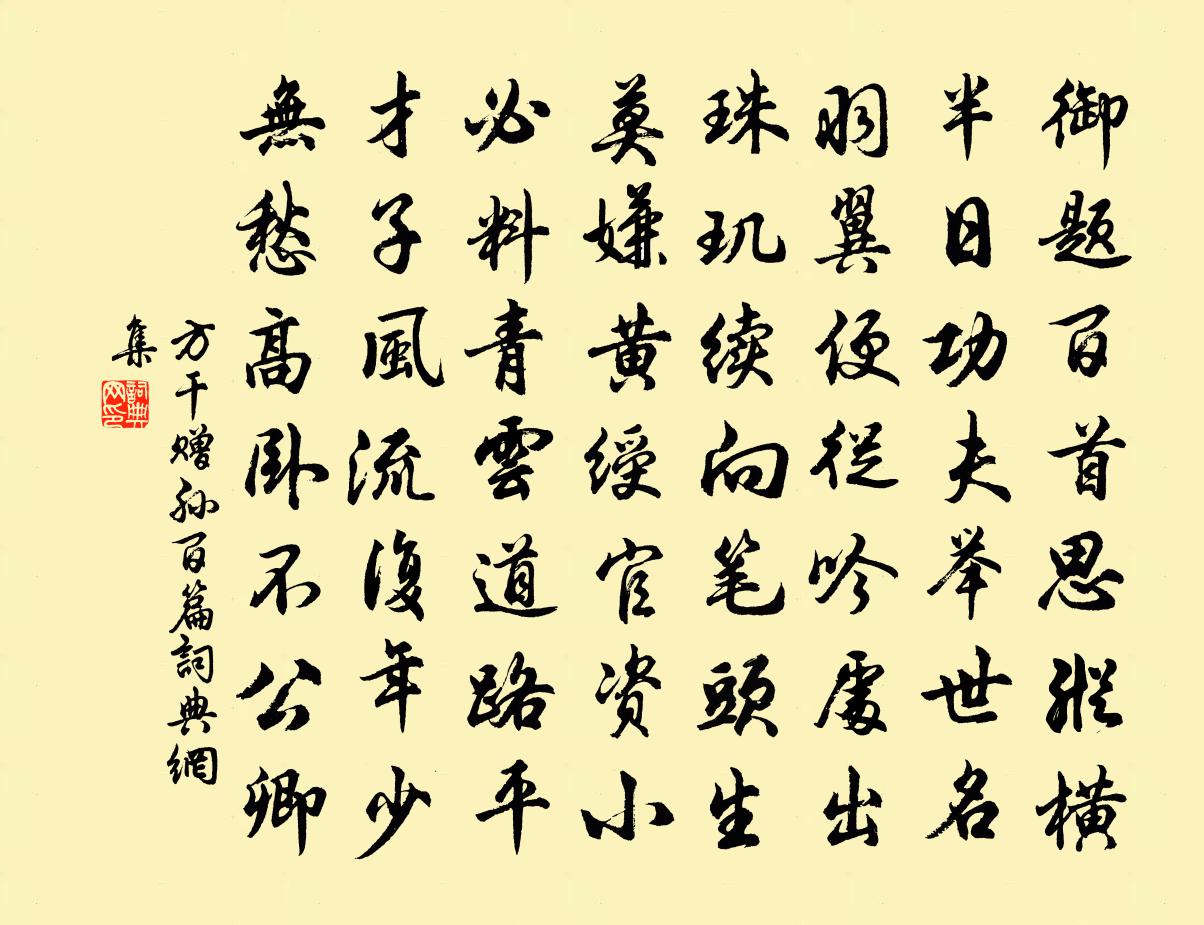 御题百首思縱橫
半日功夫举世名
羽翼便從吟處出
珠玑续向笔頭生
莫嫌黄绶官资小
必料青雲道路平
才子風流復年少
無愁高卧不公卿
方干赠孙百篇詞典網
集
詞典網印